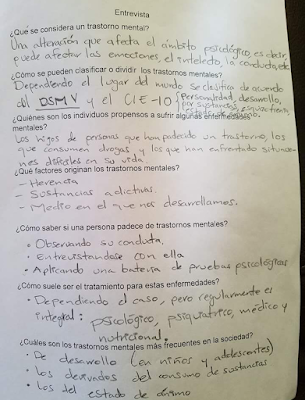 Entrevista
¿Qué se considera un trastorno mental?
Una alteración que afecta el ámbito psicológico, es decir,
puede afectar las emociones, el intelecto, la conducta, etc
¿Cómo se pueden clasificar o dividir los trastornos mentales?
Dependiendo el lugar del mundo se clasifica de acuerdo
al DSM V y el CIE-10 { Personalidad, desarrollo,
por sustancias, esquizofrenia,
¿Quiénes son los individuos propensos a sufrir algunas
mentales?
Los hijos de personas que han padecido un trastorno, los
que consumen drogas y los que han enfrentado situacio-
nes difíciles en su vida.
¿Qué factores originan los trastornos mentales?
- Herencia
- Sustancias adictivas.
- Medio en el que nos desarrollamos.
¿Cómo saber si una persona padece de trastornos mentales?
• Observando su conducta,
• Entrevistandose con ella
• Aplicando una batería de pruebas psicológicas
¿Cómo suele ser el tratamiento para estas enfermedades?
• Dependiendo el caso, pero regularmente es
integral: psicológico, psiquiátrico, médico y
nutricional.
¿Cuáles son los trastornos mentales más frecuentes en la sociedad?
• De desarrollo (en niños y adolescentes)
• Los derivados del consumo de sustancias
• Los del estado de ánimo